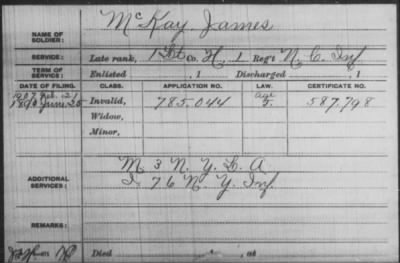 McKay, James
NAME OF SOLDIER:
SERVICE: Late rank, 1 Lt Co. H, 1 Reg't N. C. Inf
TERM OF SERVICE: Enlisted , 1 Discharged , 1
DATE OF FILING. CLASS. APPLICATION NO. LAW. CERTIFICATE NO.
1907 Feb. 21 Age
1890 June 25 Invalid, 785,044 587,798
Widow,
Minor,
M 3 N. Y. L. A
ADDITIONAL SERVICES: I. 76 N. Y. Inf.
REMARKS:
Died , at